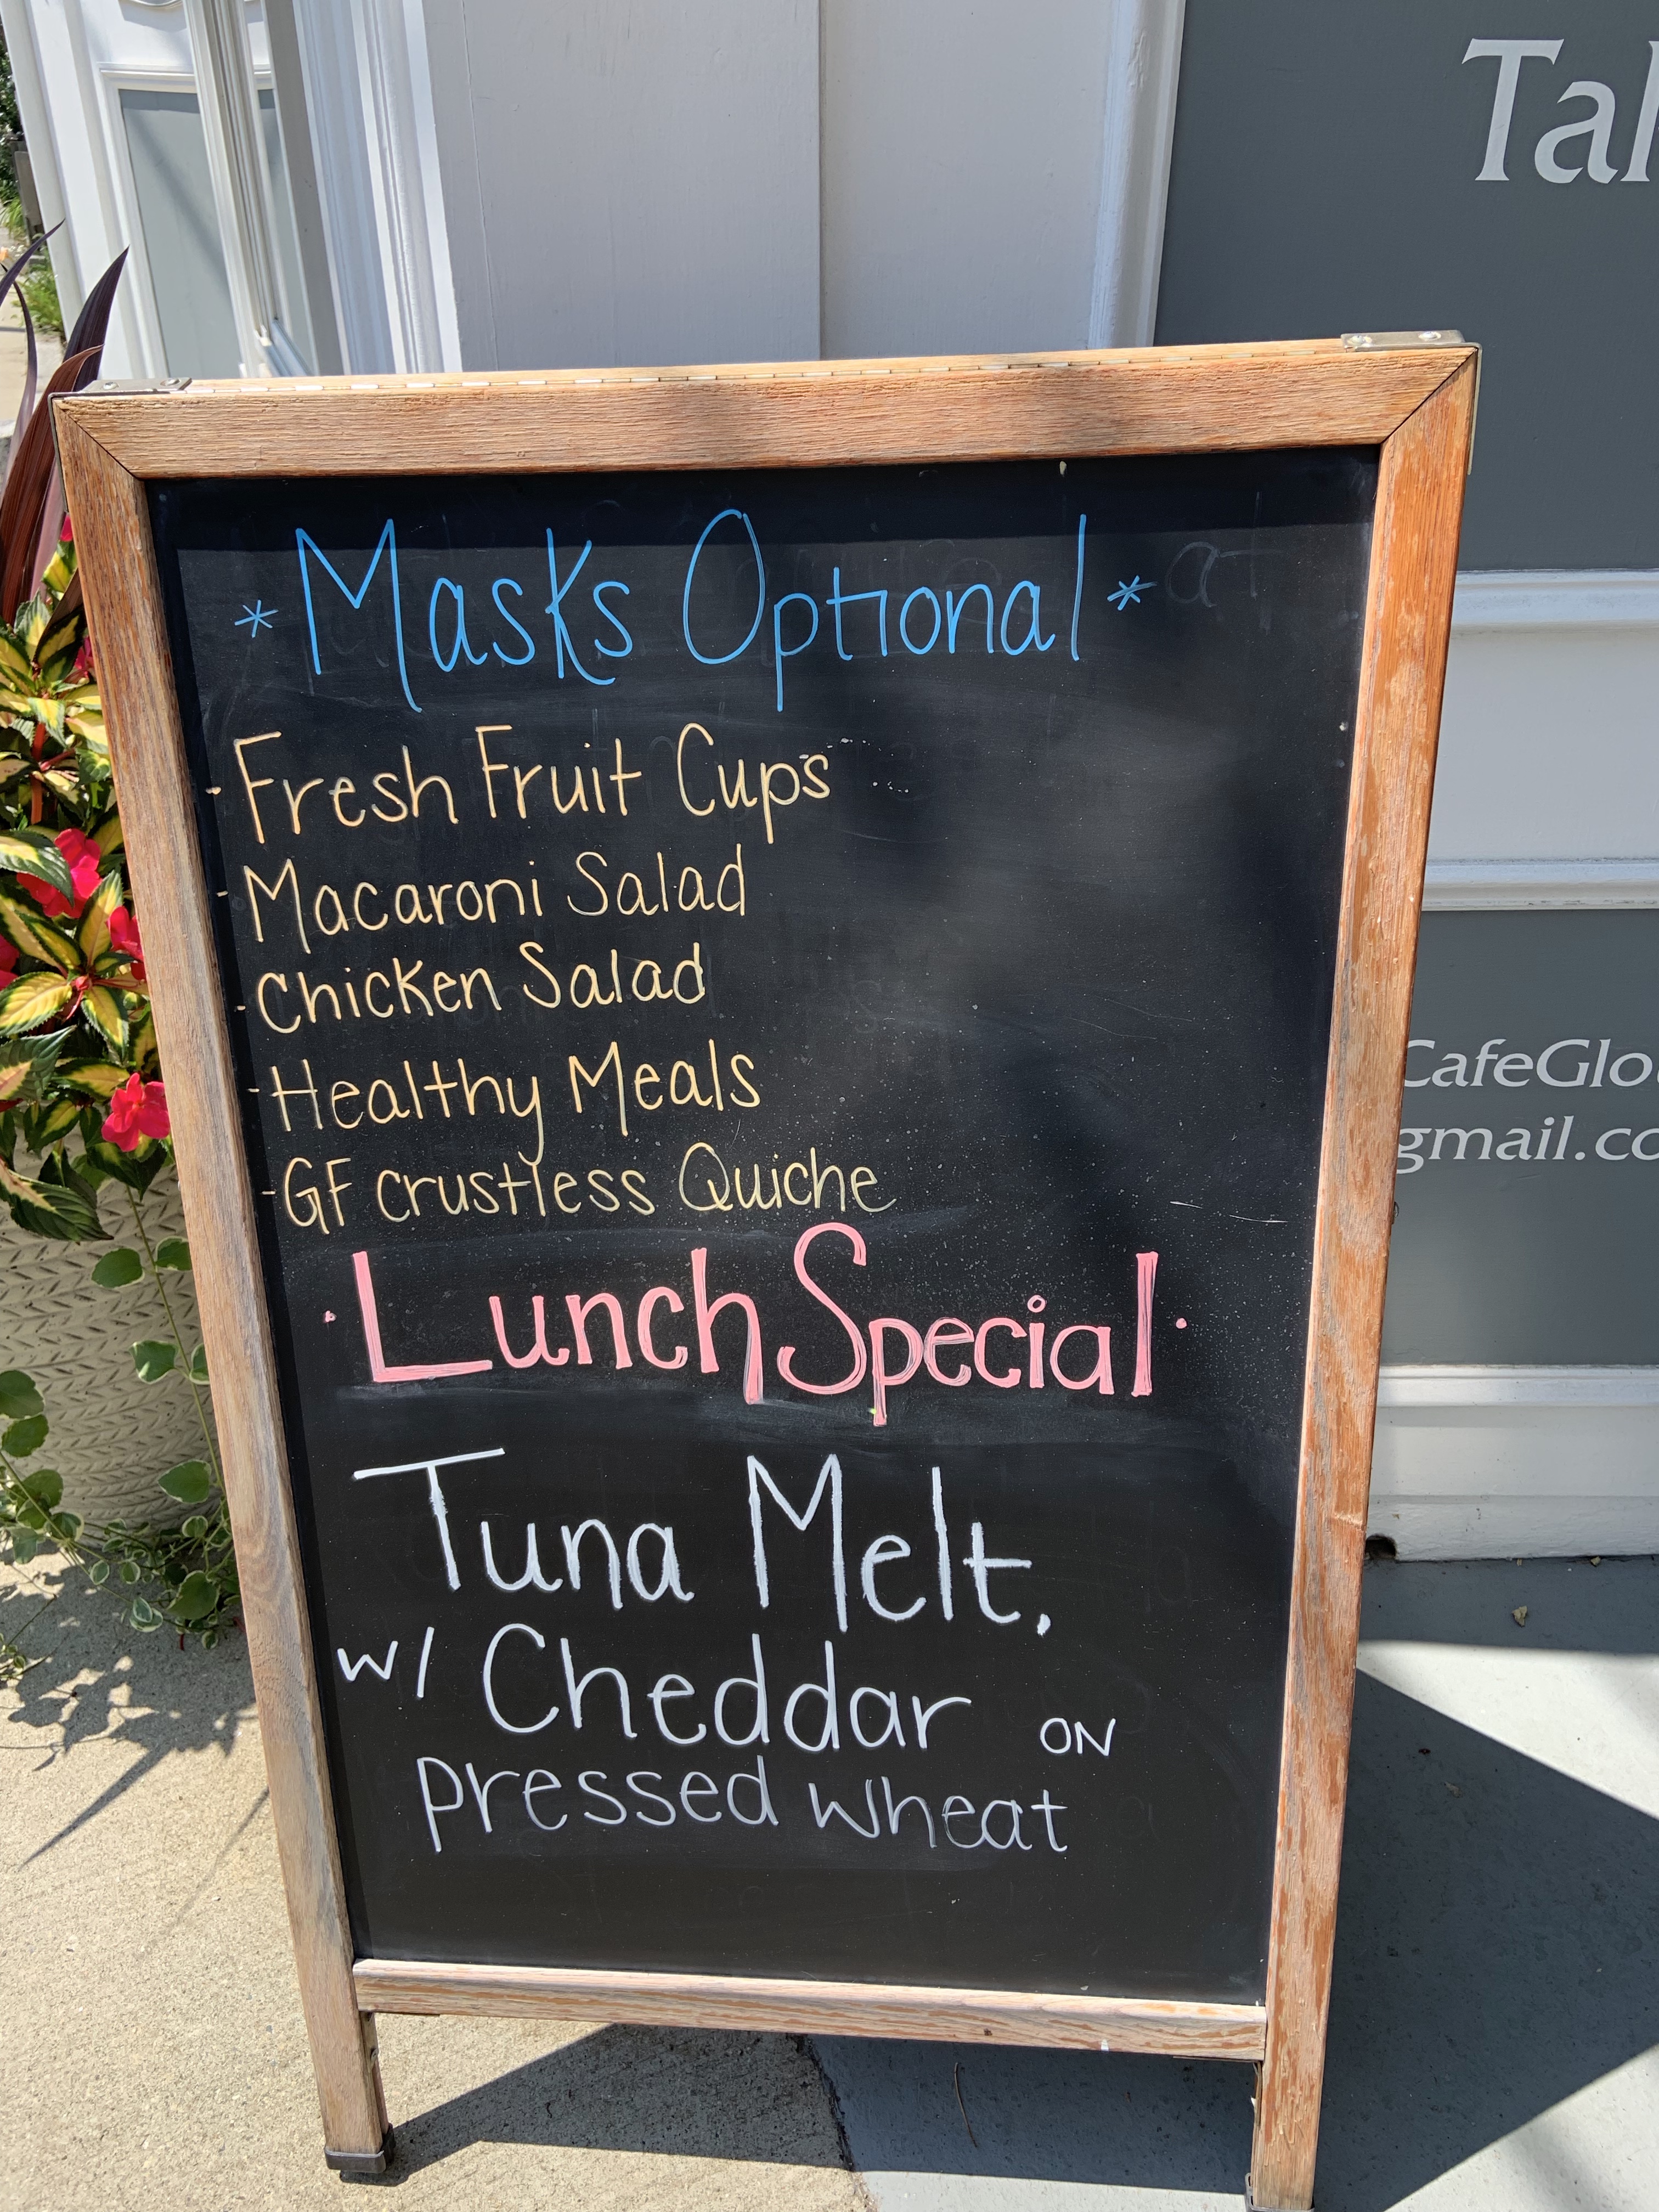 Tal
* Masks Optional *
- Fresh Fruit Cups
- Macaroni Salad
- Chicken Salad
- Healthy Meals
- GF crustless Quiche
· Lunch Special ·
Tuna Melt.
w/ Cheddar ON
pressed wheat
CafeGlou
gmail.co